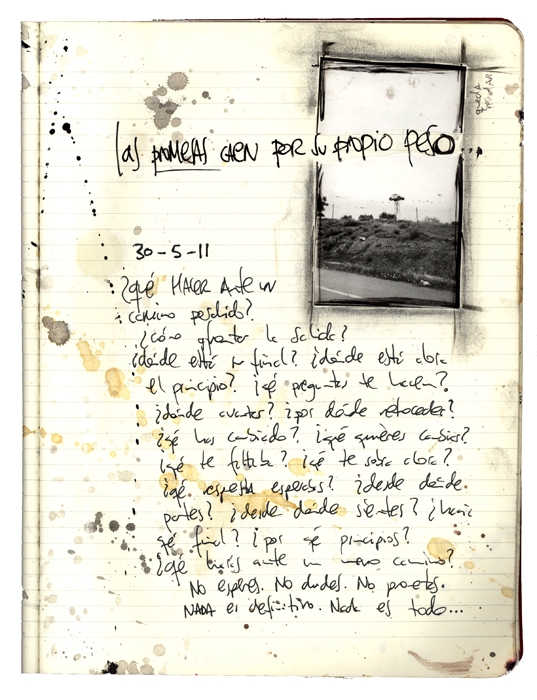 las promesas caen por su propio peso...
30-5-11
¿qué HACER ANTE UN
camino perdido?
¿cómo afrontar la salida?
¿dónde está su final? ¿dónde está ahora
el principio? ¿qué preguntas te hacen?
¿dónde cuentas? ¿por dónde retroceder?
¿qué has cambiado? ¿qué quieres cambiar?
¿qué te faltaba? ¿qué te sobra ahora?
¿qué respuesta esperabas? ¿desde dónde
partes? ¿desde dónde sientes? ¿hacia
qué final? ¿por qué principios?
¿qué harías ante un nuevo camino?
No esperes. No dudes. No prometas.
NADA es definitivo. Nada es todo...